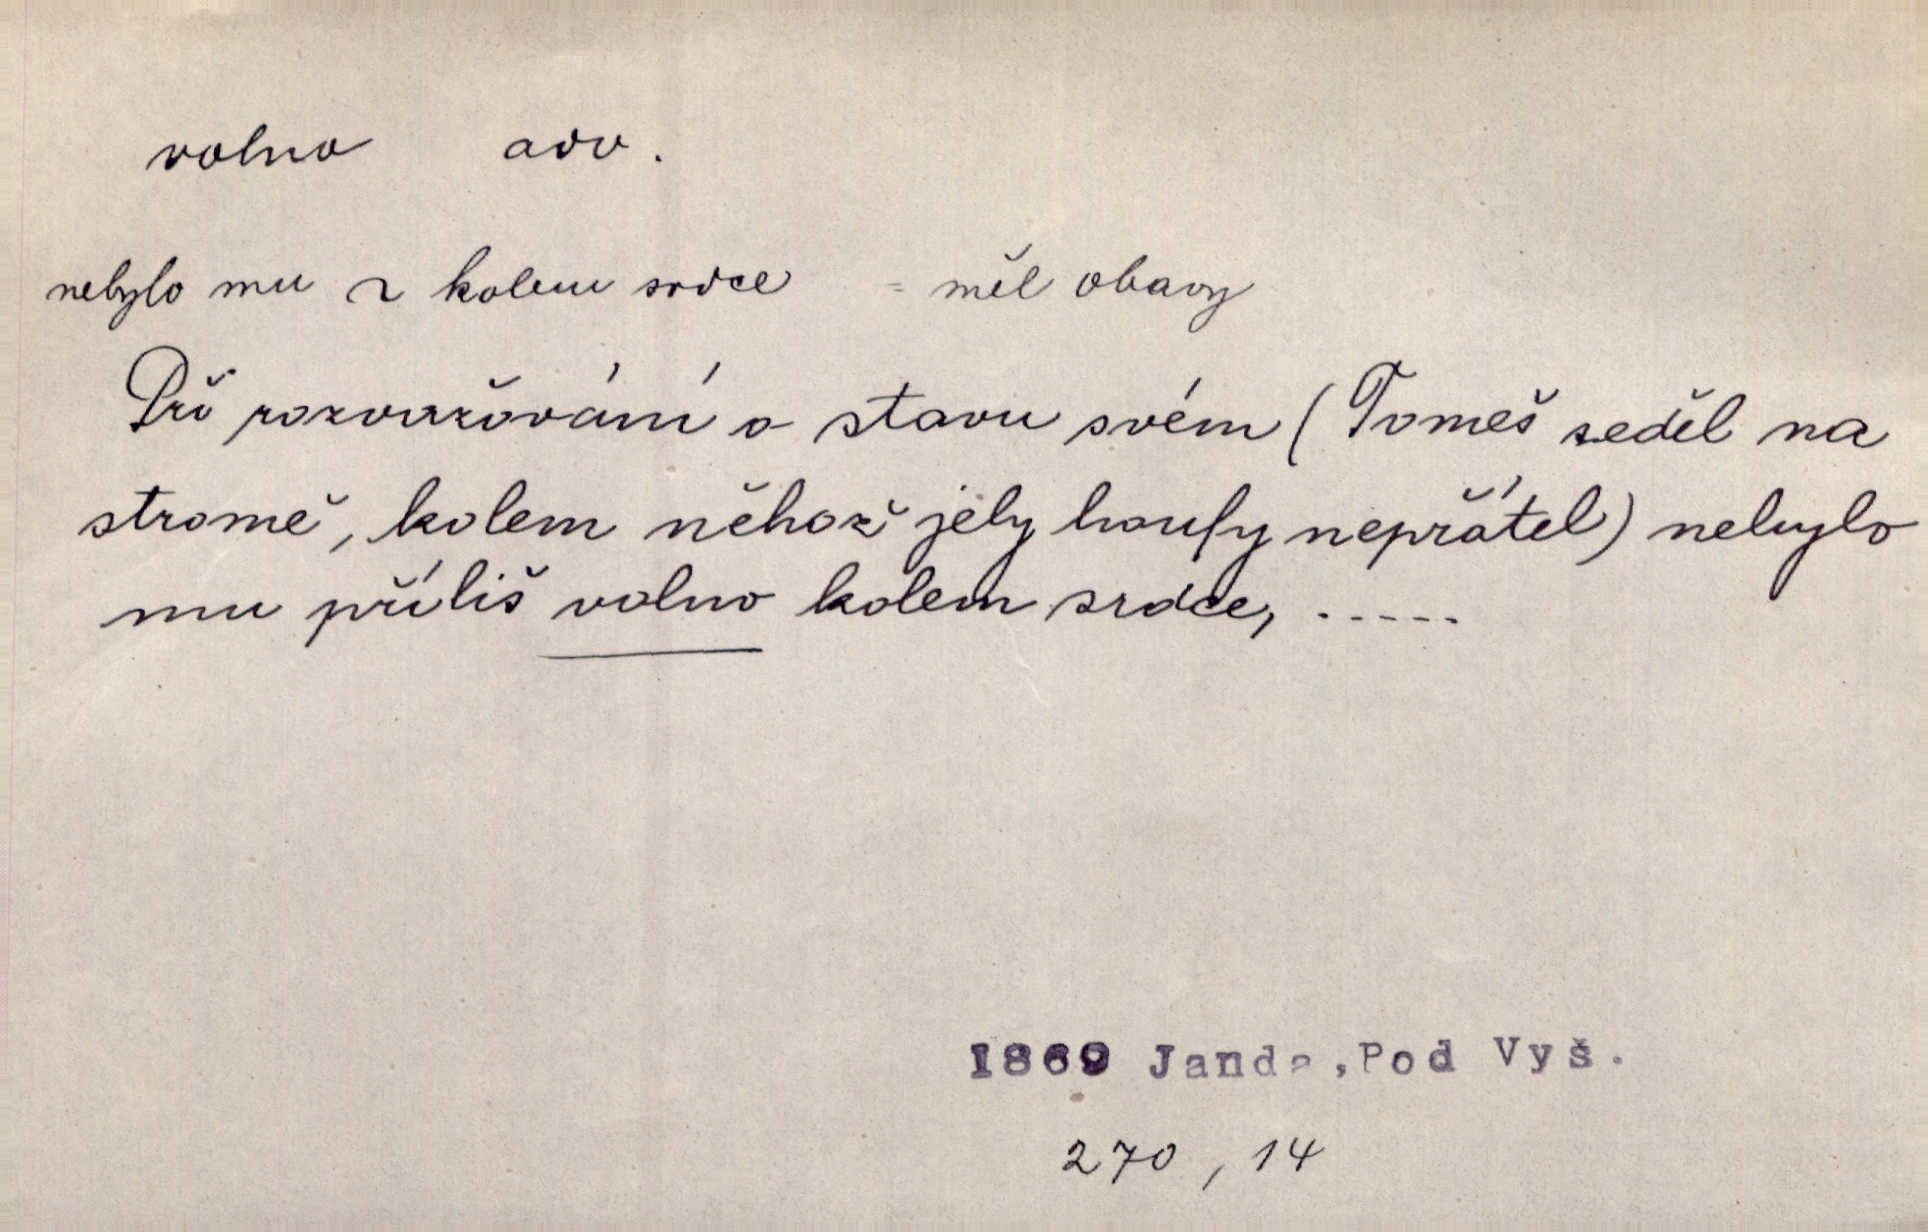 volno adv.
nebylo mu v kolem srdce = měl obavy
Při rozvažování o stavu svém (Tomeš seděl na
stromě, kolem něhož jely houfy nepřátel) nebylo
mu příliš volno kolem srdce, .....
1869 Janda,Pod Vyš.
270, 14